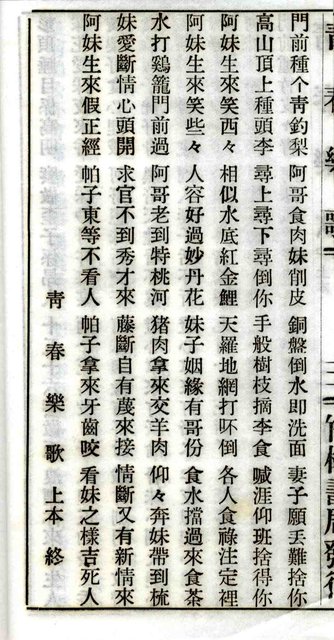 門前種个青釣梨 阿哥食肉妹削皮 銅盤倒水即洗面 妻子願丟難捨你
高山頂上種頭李 尋上尋下尋倒你 手般樹枝摘李食 喊涯仰班捨得你
阿妹生來笑西々 相似水底紅金鯉 天羅地網打吥倒 各人食祿注定裡
阿妹生來笑些々 人容好過妙丹花 妹子姻緣有哥份 食水擋過來食茶
水打鷄籠門前過 阿哥老到特桃河 猪肉拿來交羊肉 仰々奔妹帶到梳
妹愛斷情心頭開 求官不到秀才來 藤斷自有蔑來接 情斷又有新情來
阿妹生來假正經 帕子東等不看人 帕子拿來牙齒咬 看妹之樣吉死人
青春樂歌上本終